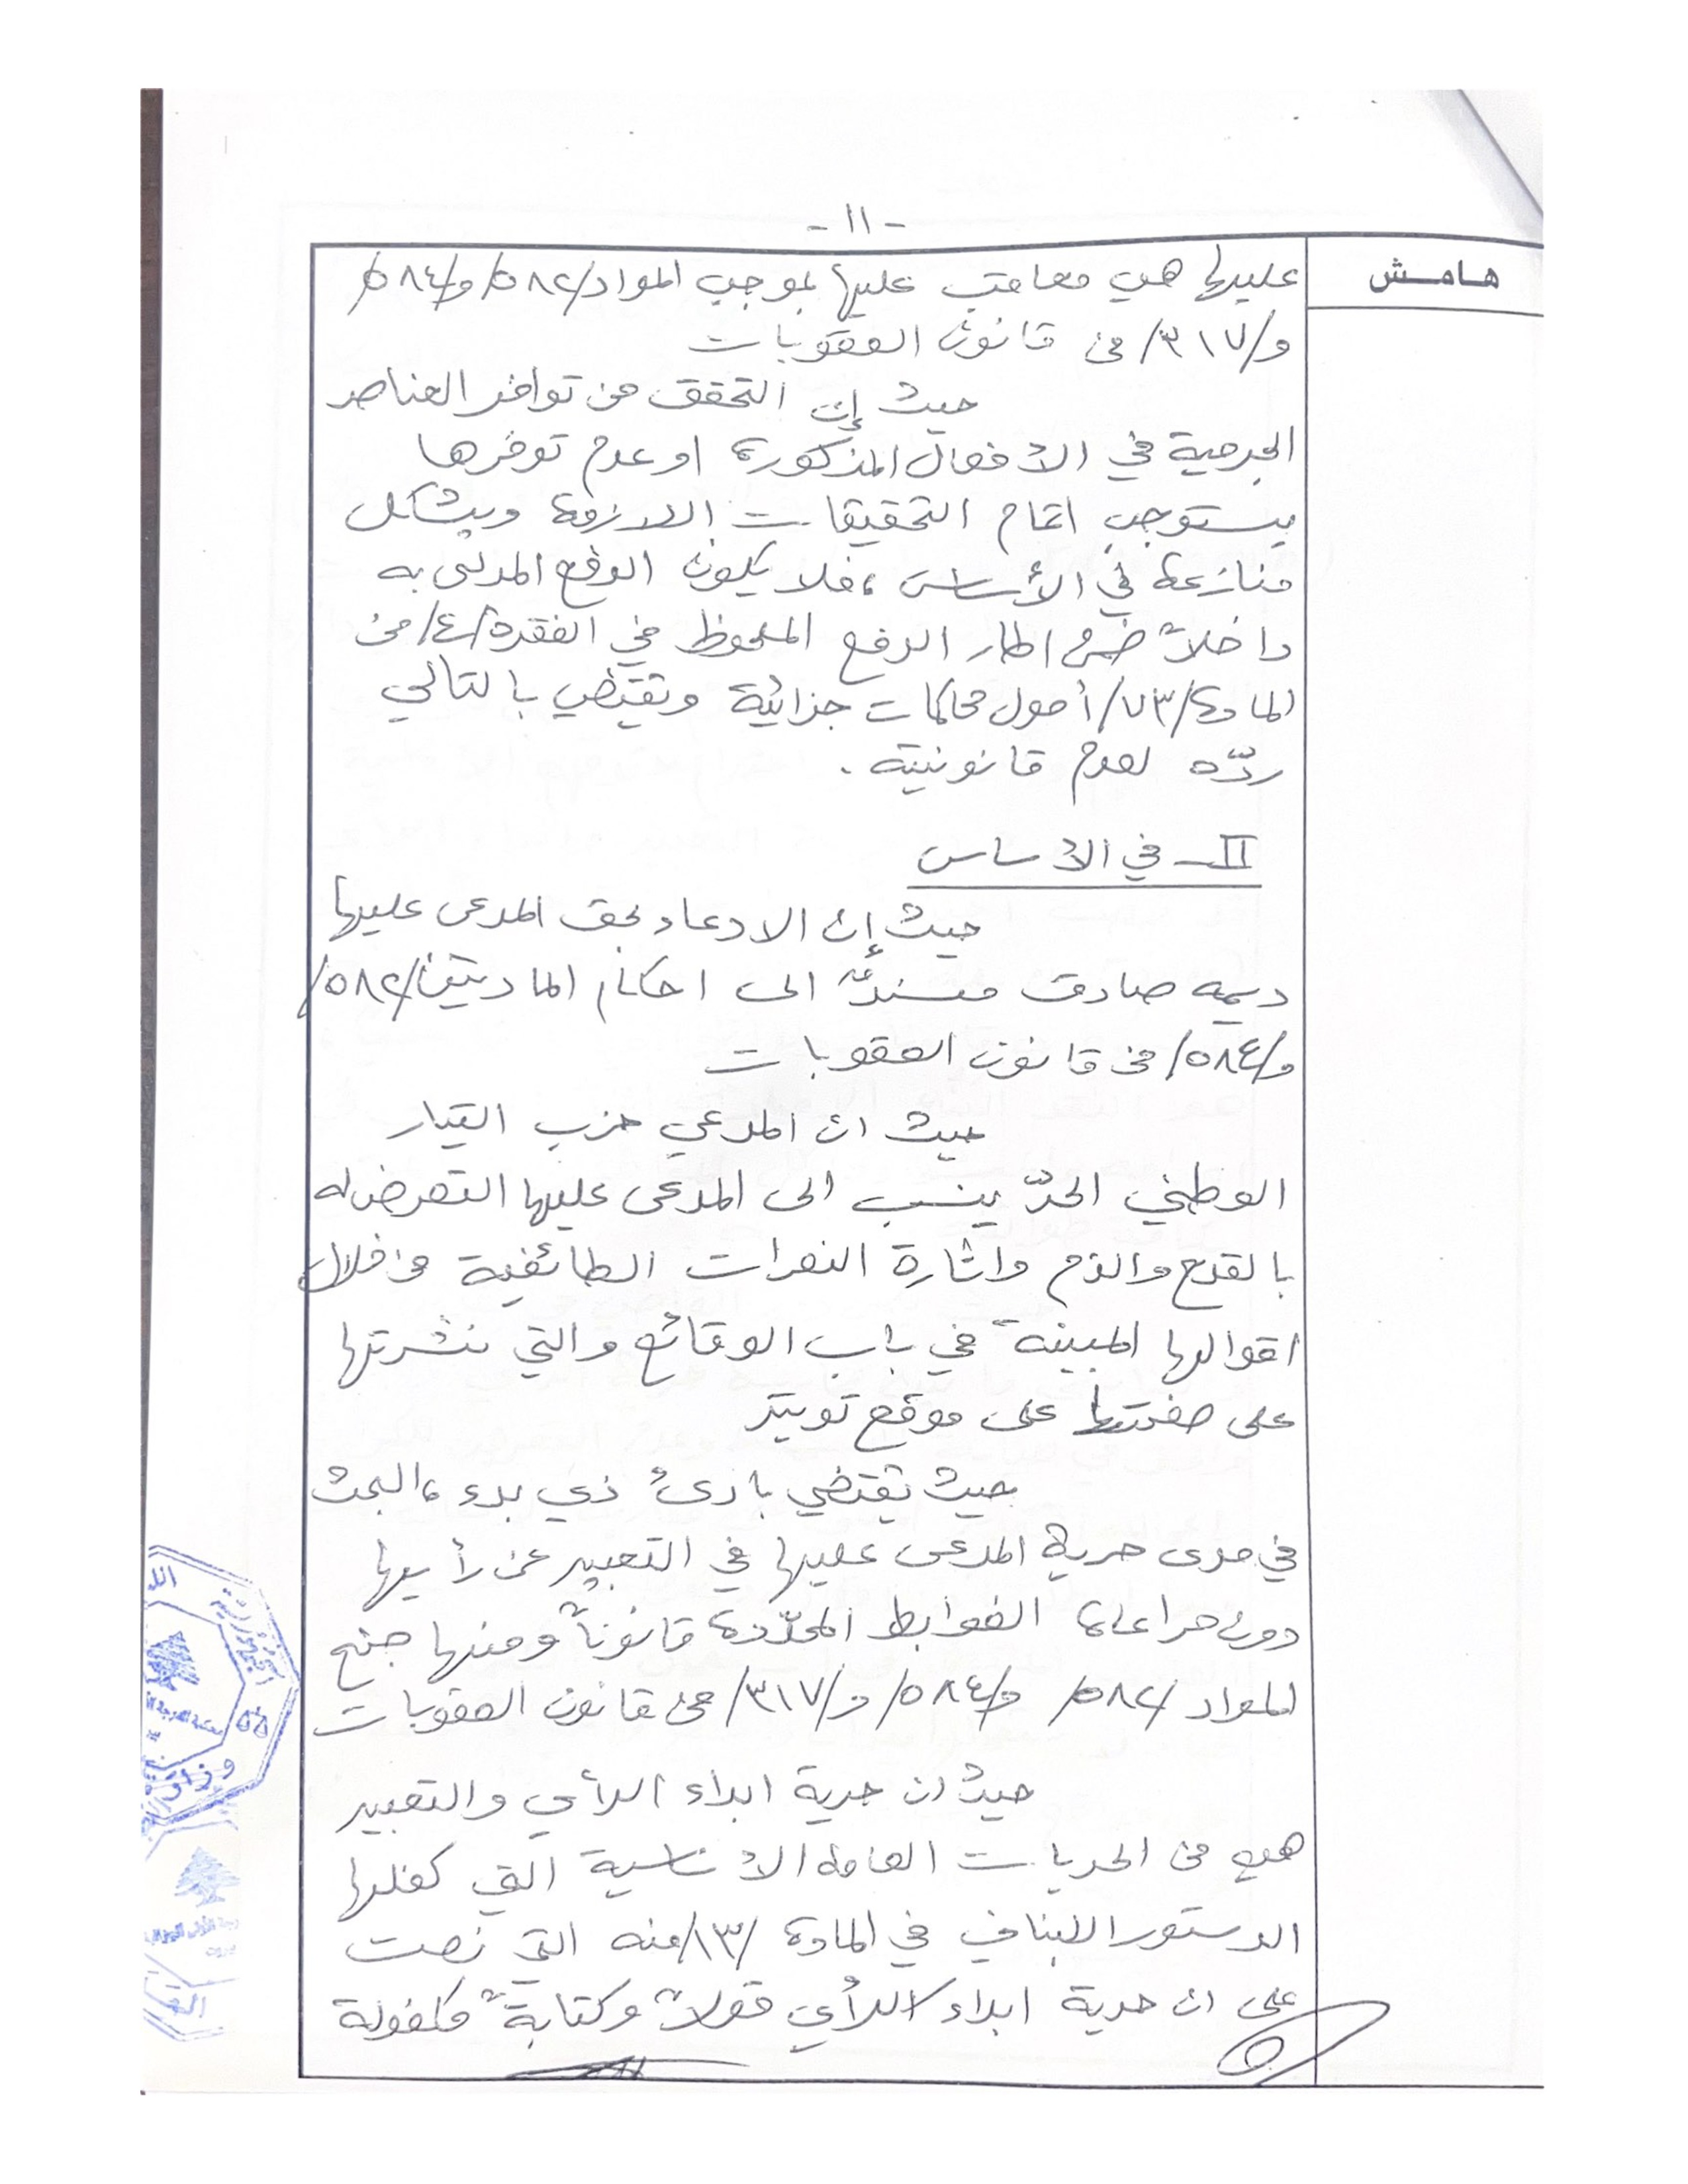 - ١١ -
هامش
عليها هي معاقب عليها بموجب المواد/٥٨٢/ و/٥٨٤/
و/٣١٧/ من قانون العقوبات
حيث إن التحقق من توافر العناصر
الجرمية في الافعال المذكورة او عدم توفرها
يستوجب اتمام التحقيقات اللازمة ويشكل
منازعة في الأساس، فلا يكون الدفع المدلى به
داخلاً ضمن اطار الدفع الملحوظ في الفقرة/٤/من
المادة/٧٣/أصول محاكمات جزائية ويقتضي بالتالي
ردّه لعدم قانونيته.
II- في الاساس
حيث إن الادعاء بحق المدعى عليها
ديمه صادق مسندٌ الى احكام المادتين/٥٨٢/
و/٥٨٤/ من قانون العقوبات
حيث ان المدعي حزب التيار
الوطني الحرّ ينسب الى المدعى عليها التعرض له
بالقدح والذم واثارة النعرات الطائفية من خلال
اقوالها المبينة في باب الوقائع والتي نشرتها
على صفحتها على موقع تويتر
حيث يقتضي بادئ ذي بدء، البحث
في مدى حرية المدعى عليها في التعبير عن رأيها
دون مراعاة الضوابط المحدّدة قانوناً ومنها جنح
المواد /٥٨٢/ و/٥٨٤/ و/٣١٧/ من قانون العقوبات
حيث ان حرية ابداء الرأي والتعبير
هي من الحريات العامة الاساسية التي كفلها
الدستور اللبناني في المادة /١٣/منه التي نصت
على ان حرية ابداء الرأي قولاً وكتابةً مكفولة
الجمهورية
وزارة